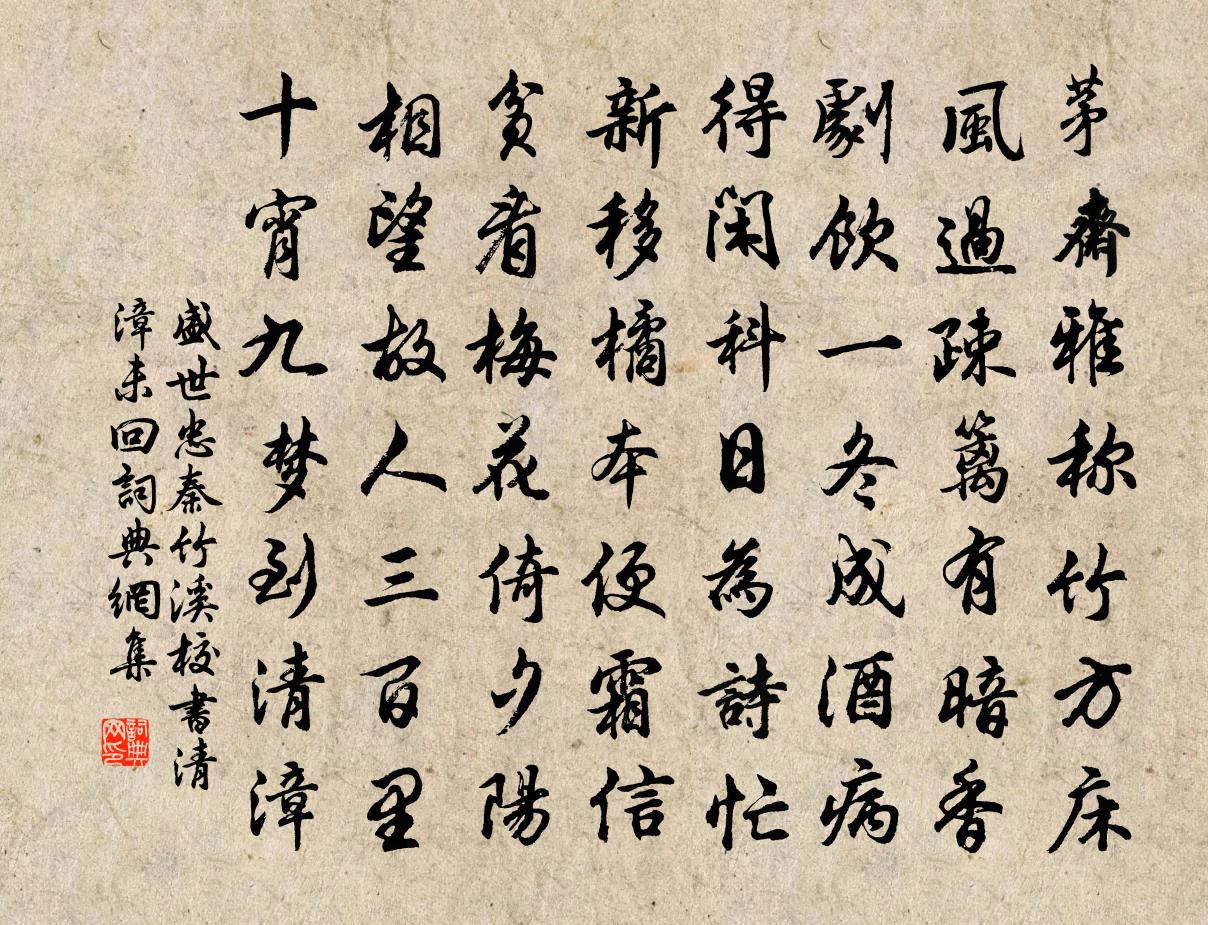 茅齋雅称竹方床
風過疎篱有暗香
劇飲一冬成酒病
得閑科日為詩忙
新移橘本便霜信
貪看梅花倚夕陽
相望故人三百里
十宵九梦到清漳
盛世忠秦竹溪校書清
漳未回詞典網集
詞典网印